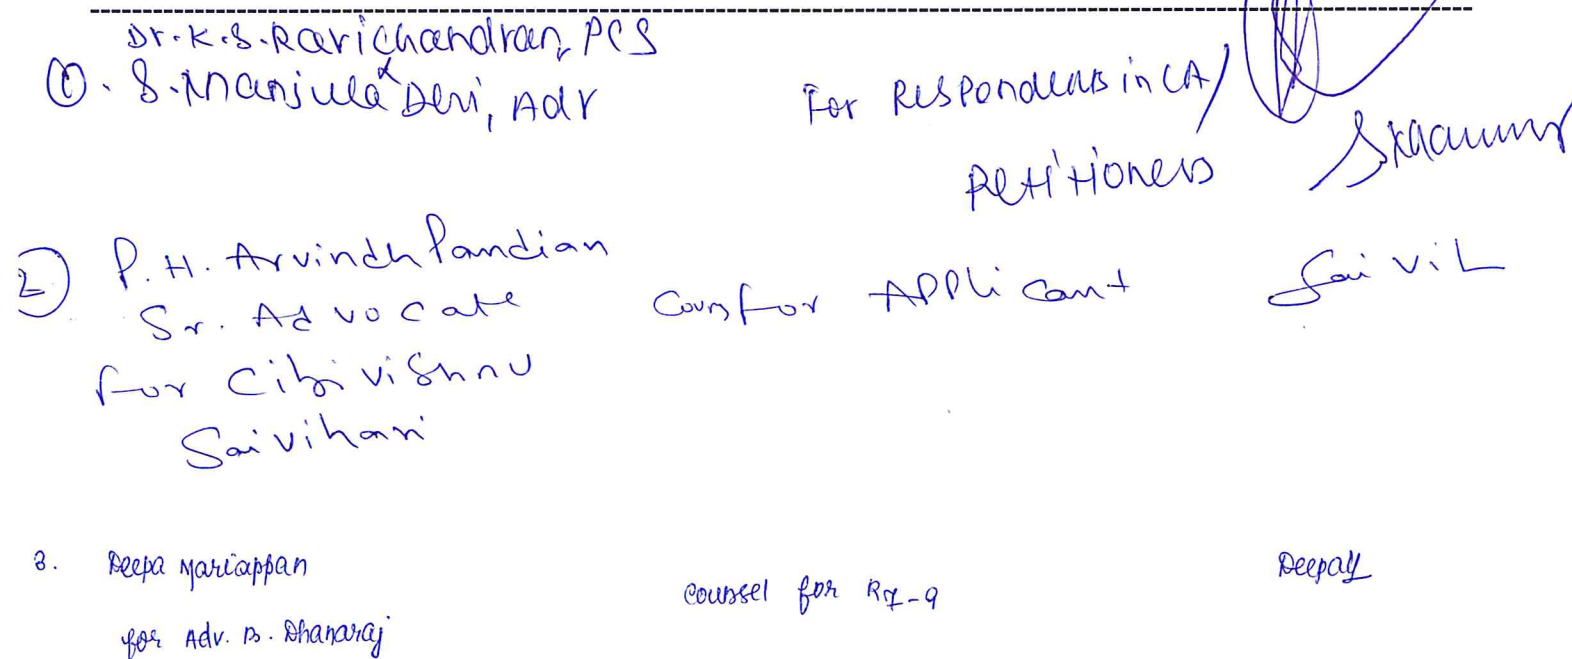 Dr. K.S. Ravichandran, PCS
①. S. Manjula Devi, Adv
For Respondents in CA/
Petitioners
2) P.H. Arvindh Pandian
Sr. Advocate
for Cibi vishnu
Sai vihari
Couns for Applicant
3. Deepa Mariappan
for Adv. B. Dhanaraj
Counsel for R7-9